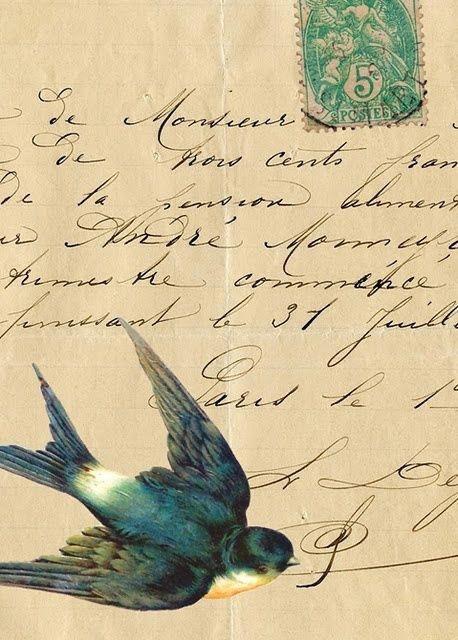 5c
POSTES
de Monsieur
De trois cents fran
De la pension aliment
ur André
trimestre commencé
finissant le 31 Juill
Paris le 1